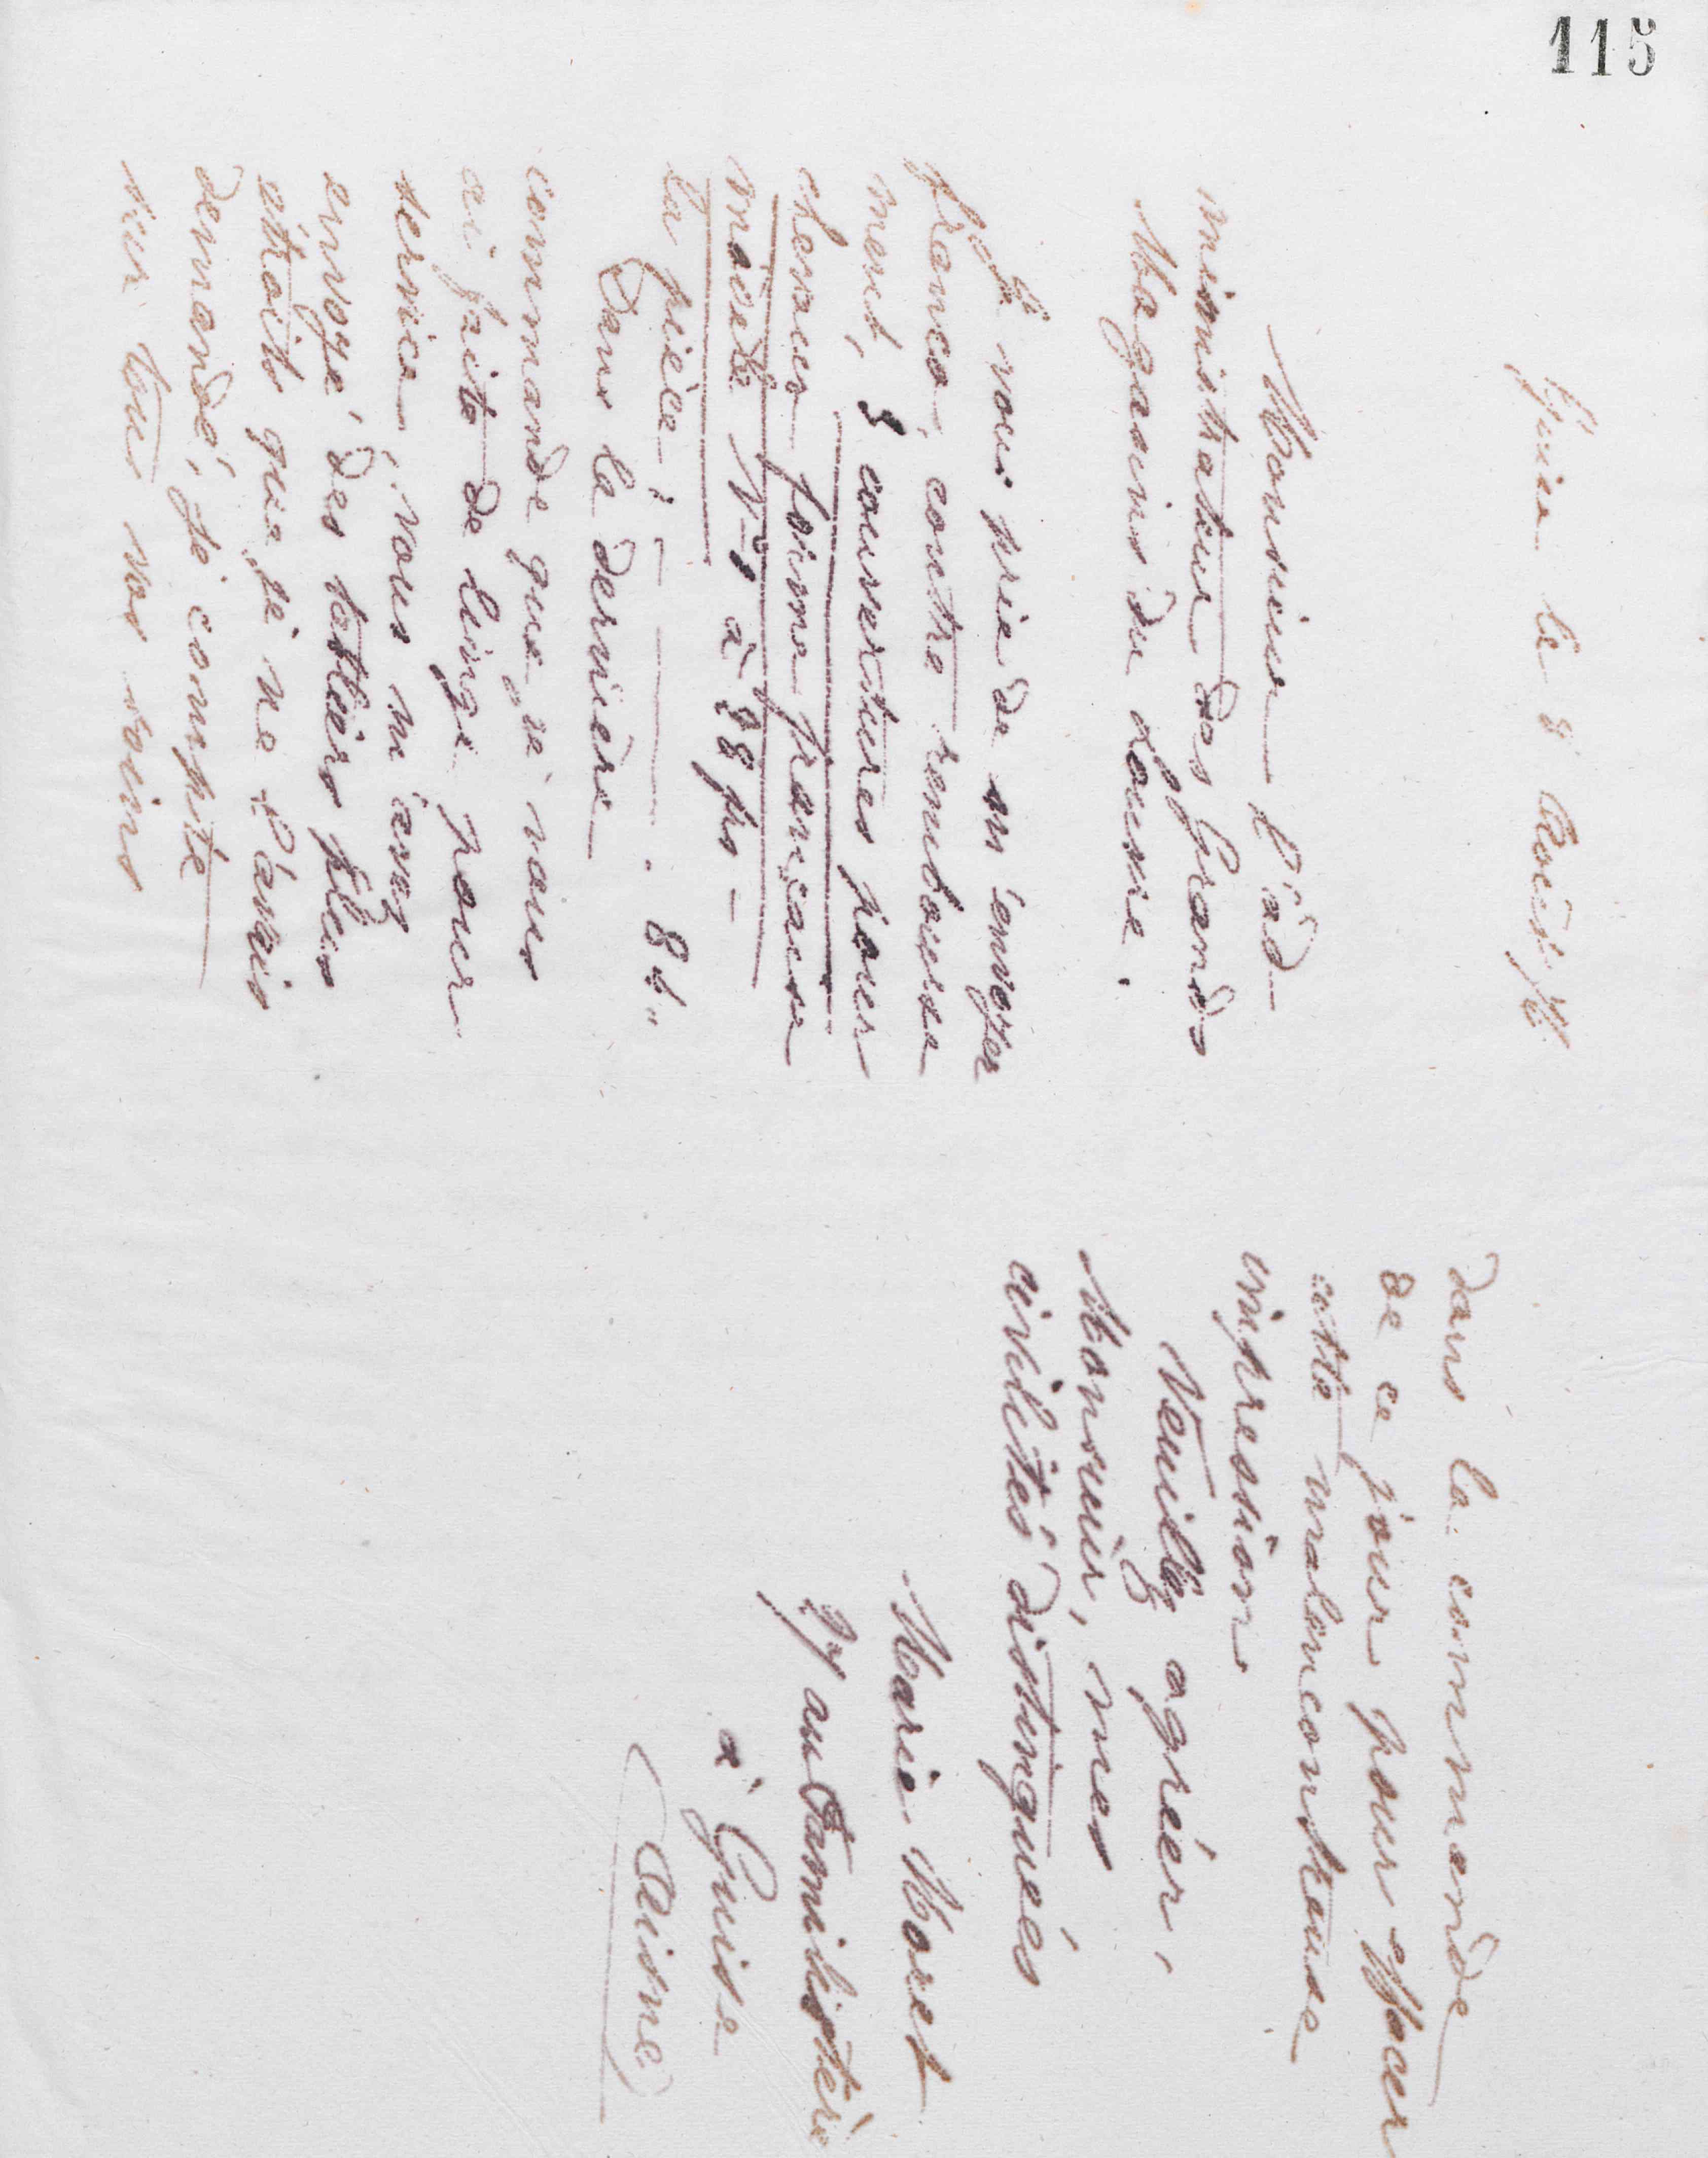 115
Guise le 8 Août
Monsieur l'ad-
ministrateur des Grands
Magasins du Louvre.
Je vous prie de m'envoyer
franco, contre rembourse
ment, 3 couvertures pour
chevaux forme française
mode N° 1 à 28 frs -
la pièce : — 84 "
Dans la dernière
commande que je vous
ai faite de linge pour
service, vous m'avez
envoyé des tabliers plus
étroits que je ne l'avais
demandé, je compte
sur tous vos soins
dans la commande
de ce jour pour effacer
cette malencontreuse
impression
Veuillez agréer,
Monsieur, mes
civilités distinguées
Marie Moret
au Familistère
à Guise
(Aisne)